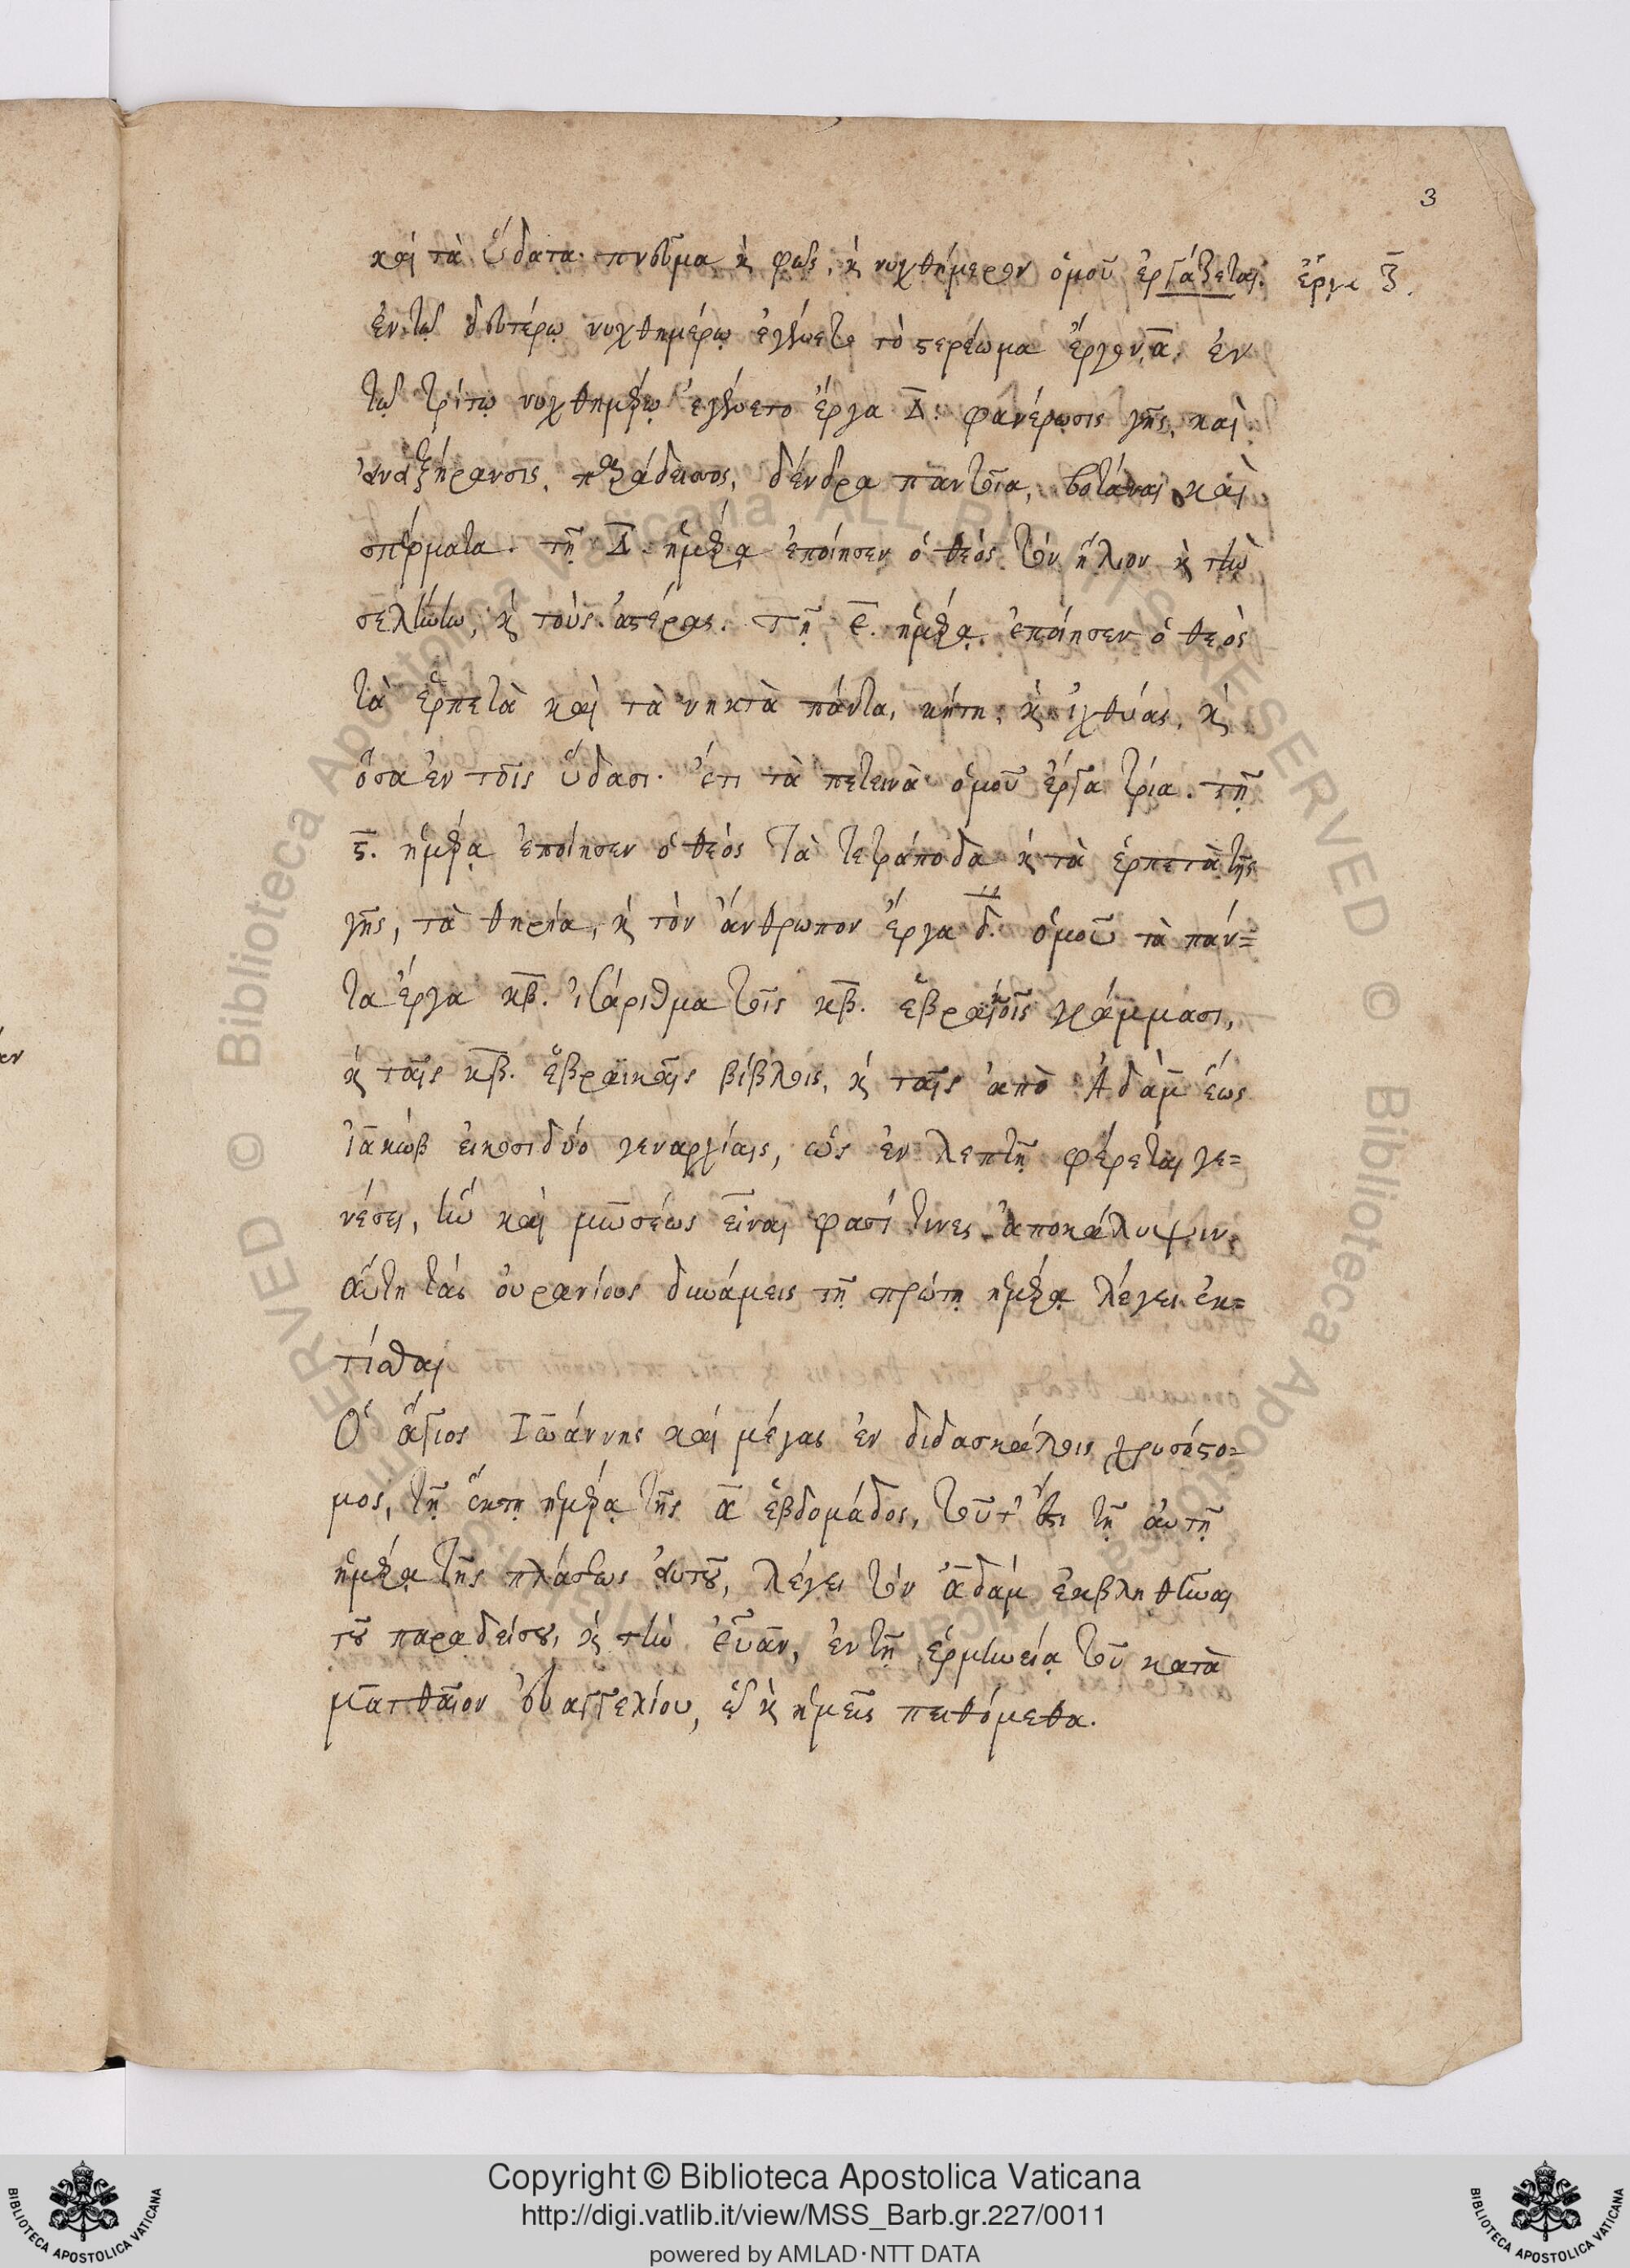 3
καὶ τὰ ὕδατα· πνεῦμα κ̀ φῶς, κ̀ νυχθήμερον ὁμοῦ ἐργάζεται. ἔργα ζ̅.
ἐν τῷ δευτέρῳ νυχθημέρῳ ἐγένετο τὸ στερέωμα ἔργον, α̅. ἐν
τῷ τρίτῳ νυχθημέρῳ ἐγένετο ἔργα Δ̅. φανέρωσις γῆς, καὶ
ἀναξήρανσις, παράδεισος, δένδρα παντοῖα, βοτάναι καὶ
σπέρματα. τῇ Δ̅. ἡμέρᾳ ἐποίησεν ὁ θεὸς τὸν ἥλιον κ̀ τὴν
σελήνην, κ̀ τοὺς ἀστέρας. τῇ ε̅. ἡμέρᾳ ἐποίησεν ὁ θεὸς
τὰ ἑρπετὰ καὶ τὰ νηκτὰ πάντα, κήτη, κ̀ ἰχθύας, κ̀
ὅσα ἐν τοῖς ὕδασι· ἔτι τὰ πετεινὰ ὁμοῦ ἔργα τρία. τῇ
ς̅. ἡμέρᾳ ἐποίησεν ὁ θεὸς τὰ τετράποδα κ̀ τὰ ἑρπετὰ τῆς
γῆς, τὰ θηρία, κ̀ τὸν ἄνθρωπον ἔργα δ̅. ὁμοῦ τὰ πάν=
τα ἔργα κβ̅. ἰσάριθμα τοῖς κβ̅. ἑβραϊκοῖς γράμμασι,
κ̀ ταῖς κβ̅. ἑβραϊκαῖς βίβλοις, κ̀ ταῖς ἀπὸ Ἀδὰμ ἕως
Ἰακὼβ εἰκοσιδύο γεναρχίαις, ὡς ἐν λεπτῇ φέρεται γε=
νέσει, ἣν καὶ μωσέως εἶναι φασί τινες ἀποκάλυψιν·
αὕτη τὰς οὐρανίους δυνάμεις τῇ πρώτῃ ἡμέρᾳ λέγει ἐκ=
τίσθαι
Ὁ ἅγιος Ἰωάννης καὶ μέγας ἐν διδασκάλοις χρυσόστο=
μος, τῇ ἕκτῃ ἡμέρᾳ τῆς α̅ ἑβδομάδος, τοῦτ' ἔστι τῇ αὐτῇ
ἡμέρᾳ τῆς πλάσεως αὐτοῦ, λέγει τὸν ἀδὰμ ἐκβληθῆναι
τοῦ παραδείσου, κ̀ τὴν εὔαν, ἐν τῇ ἑρμηνείᾳ τοῦ κατὰ
ματθαῖον εὐαγγελίου, ᾧ κ̀ ἡμεῖς πειθόμεθα.
Copyright © Biblioteca Apostolica Vaticana
http://digi.vatlib.it/view/MSS_Barb.gr.227/0011
powered by AMLAD·NTT DATA